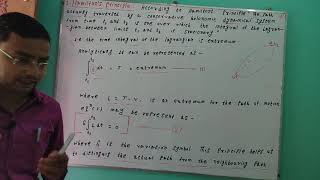 Hamilton's Principle:- According to Hamilton Principle the Path
actually traversed by a conservative holonomic dynamical system
from time t₁ and t₂ is one over which the integral of the lagran-
gian between limits t₁ and t₂ is stationary
i.e the time integral of the lagrangian is extremum
Analytically it can be represented as -
∫ L dt = extremum
where L = T-V. is an extremum for the path of motion
may be represented as -
δ∫ L dt = 0
where δ is the variation symbol. This principle helps us
to distinguish the actual path from the neighbouring path